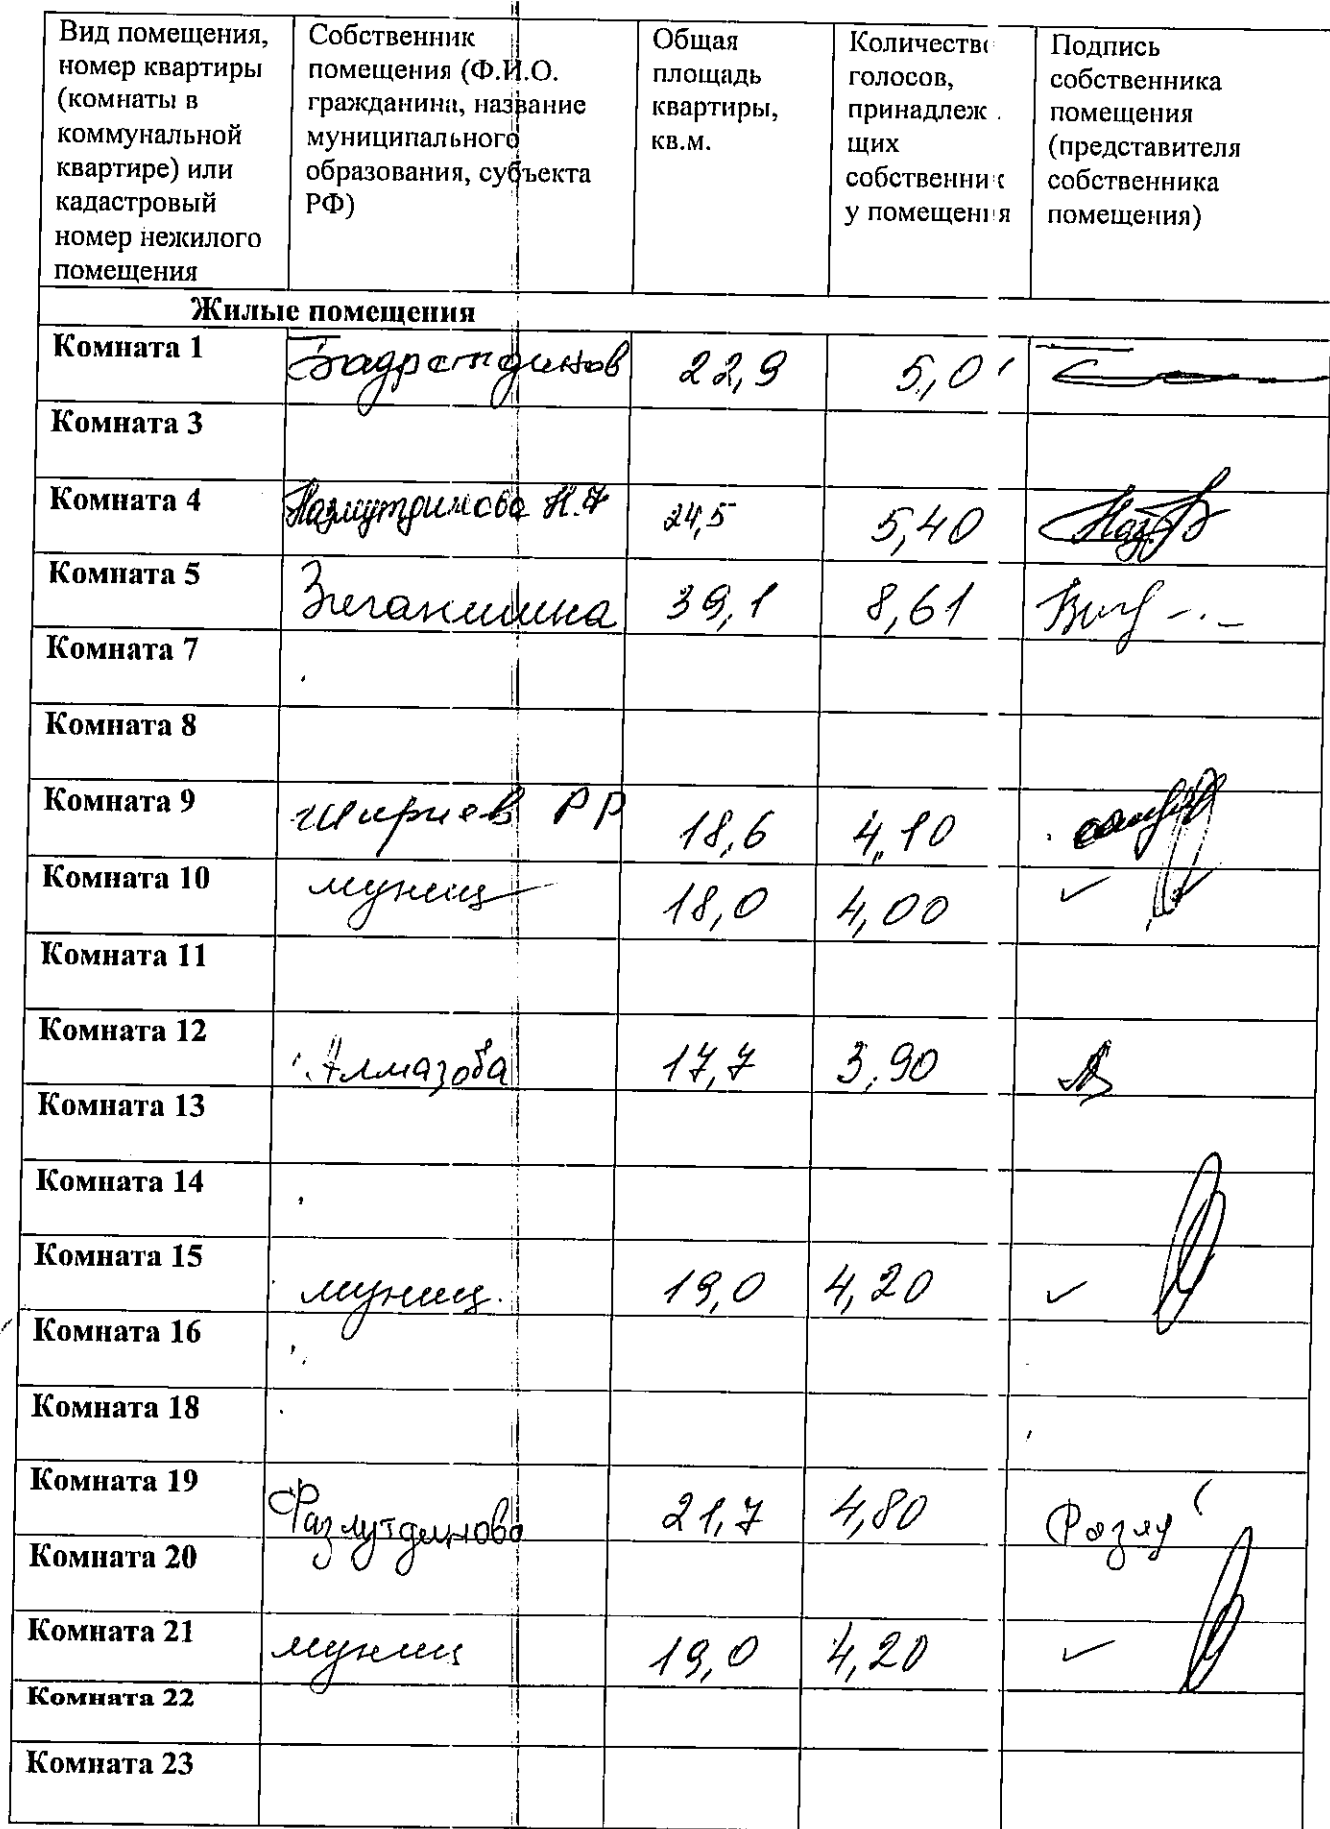 Вид помещения,
номер квартиры
(комнаты в
коммунальной
квартире) или
кадастровый
номер нежилого
помещения
Собственник
помещения (Ф.И.О.
гражданина, название
муниципального
образования, субъекта
РФ)
Общая
площадь
квартиры,
кв.м.
Количество
голосов,
принадлеж
щих
собственник
у помещения
Подпись
собственника
помещения
(представителя
собственника
помещения)
Жилые помещения
Комната 1 Бадретдинов 22,9 5,0
Комната 3
Комната 4 Назмутдинова Н.Ф 24,5 5,40
Комната 5 Зиганшина 39,1 8,61
Комната 7
Комната 8
Комната 9 Шириев РР 18,6 4,10
Комната 10 муниц 18,0 4,00 ✓
Комната 11
Комната 12 Алмазова 17,7 3,90
Комната 13
Комната 14
Комната 15 муниц. 19,0 4,20 ✓
Комната 16
Комната 18
Комната 19 Фазлутдинова 21,7 4,80
Комната 20
Комната 21 муниц 19,0 4,20 ✓
Комната 22
Комната 23